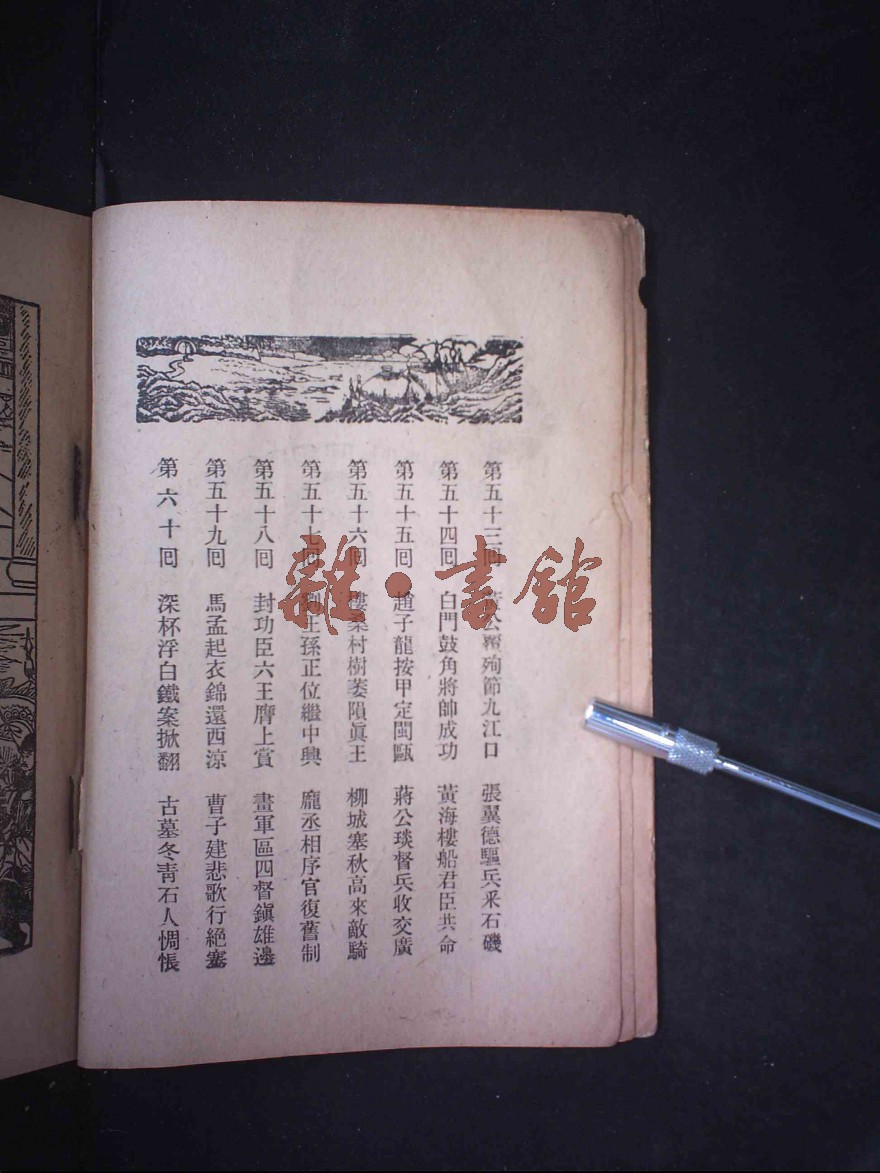 第五十三回 公覆殉節九江口 張翼德驅兵釆石磯
第五十四回 白門鼓角將帥成功 黃海樓船君臣共命
第五十五回 趙子龍按甲定閩甌 蔣公琰督兵收交廣
第五十六回 樓桑村樹萎隕眞王 柳城塞秋高來敵騎
第五十七回 劉王孫正位繼中興 龐丞相序官復舊制
第五十八回 封功臣六王膺上賞 畫軍區四督鎭雄邊
第五十九回 馬孟起衣錦還西涼 曹子建悲歌行絕塞
第六十回 深杯浮白鐵案掀翻 古墓冬靑石人惆悵
雜·書館